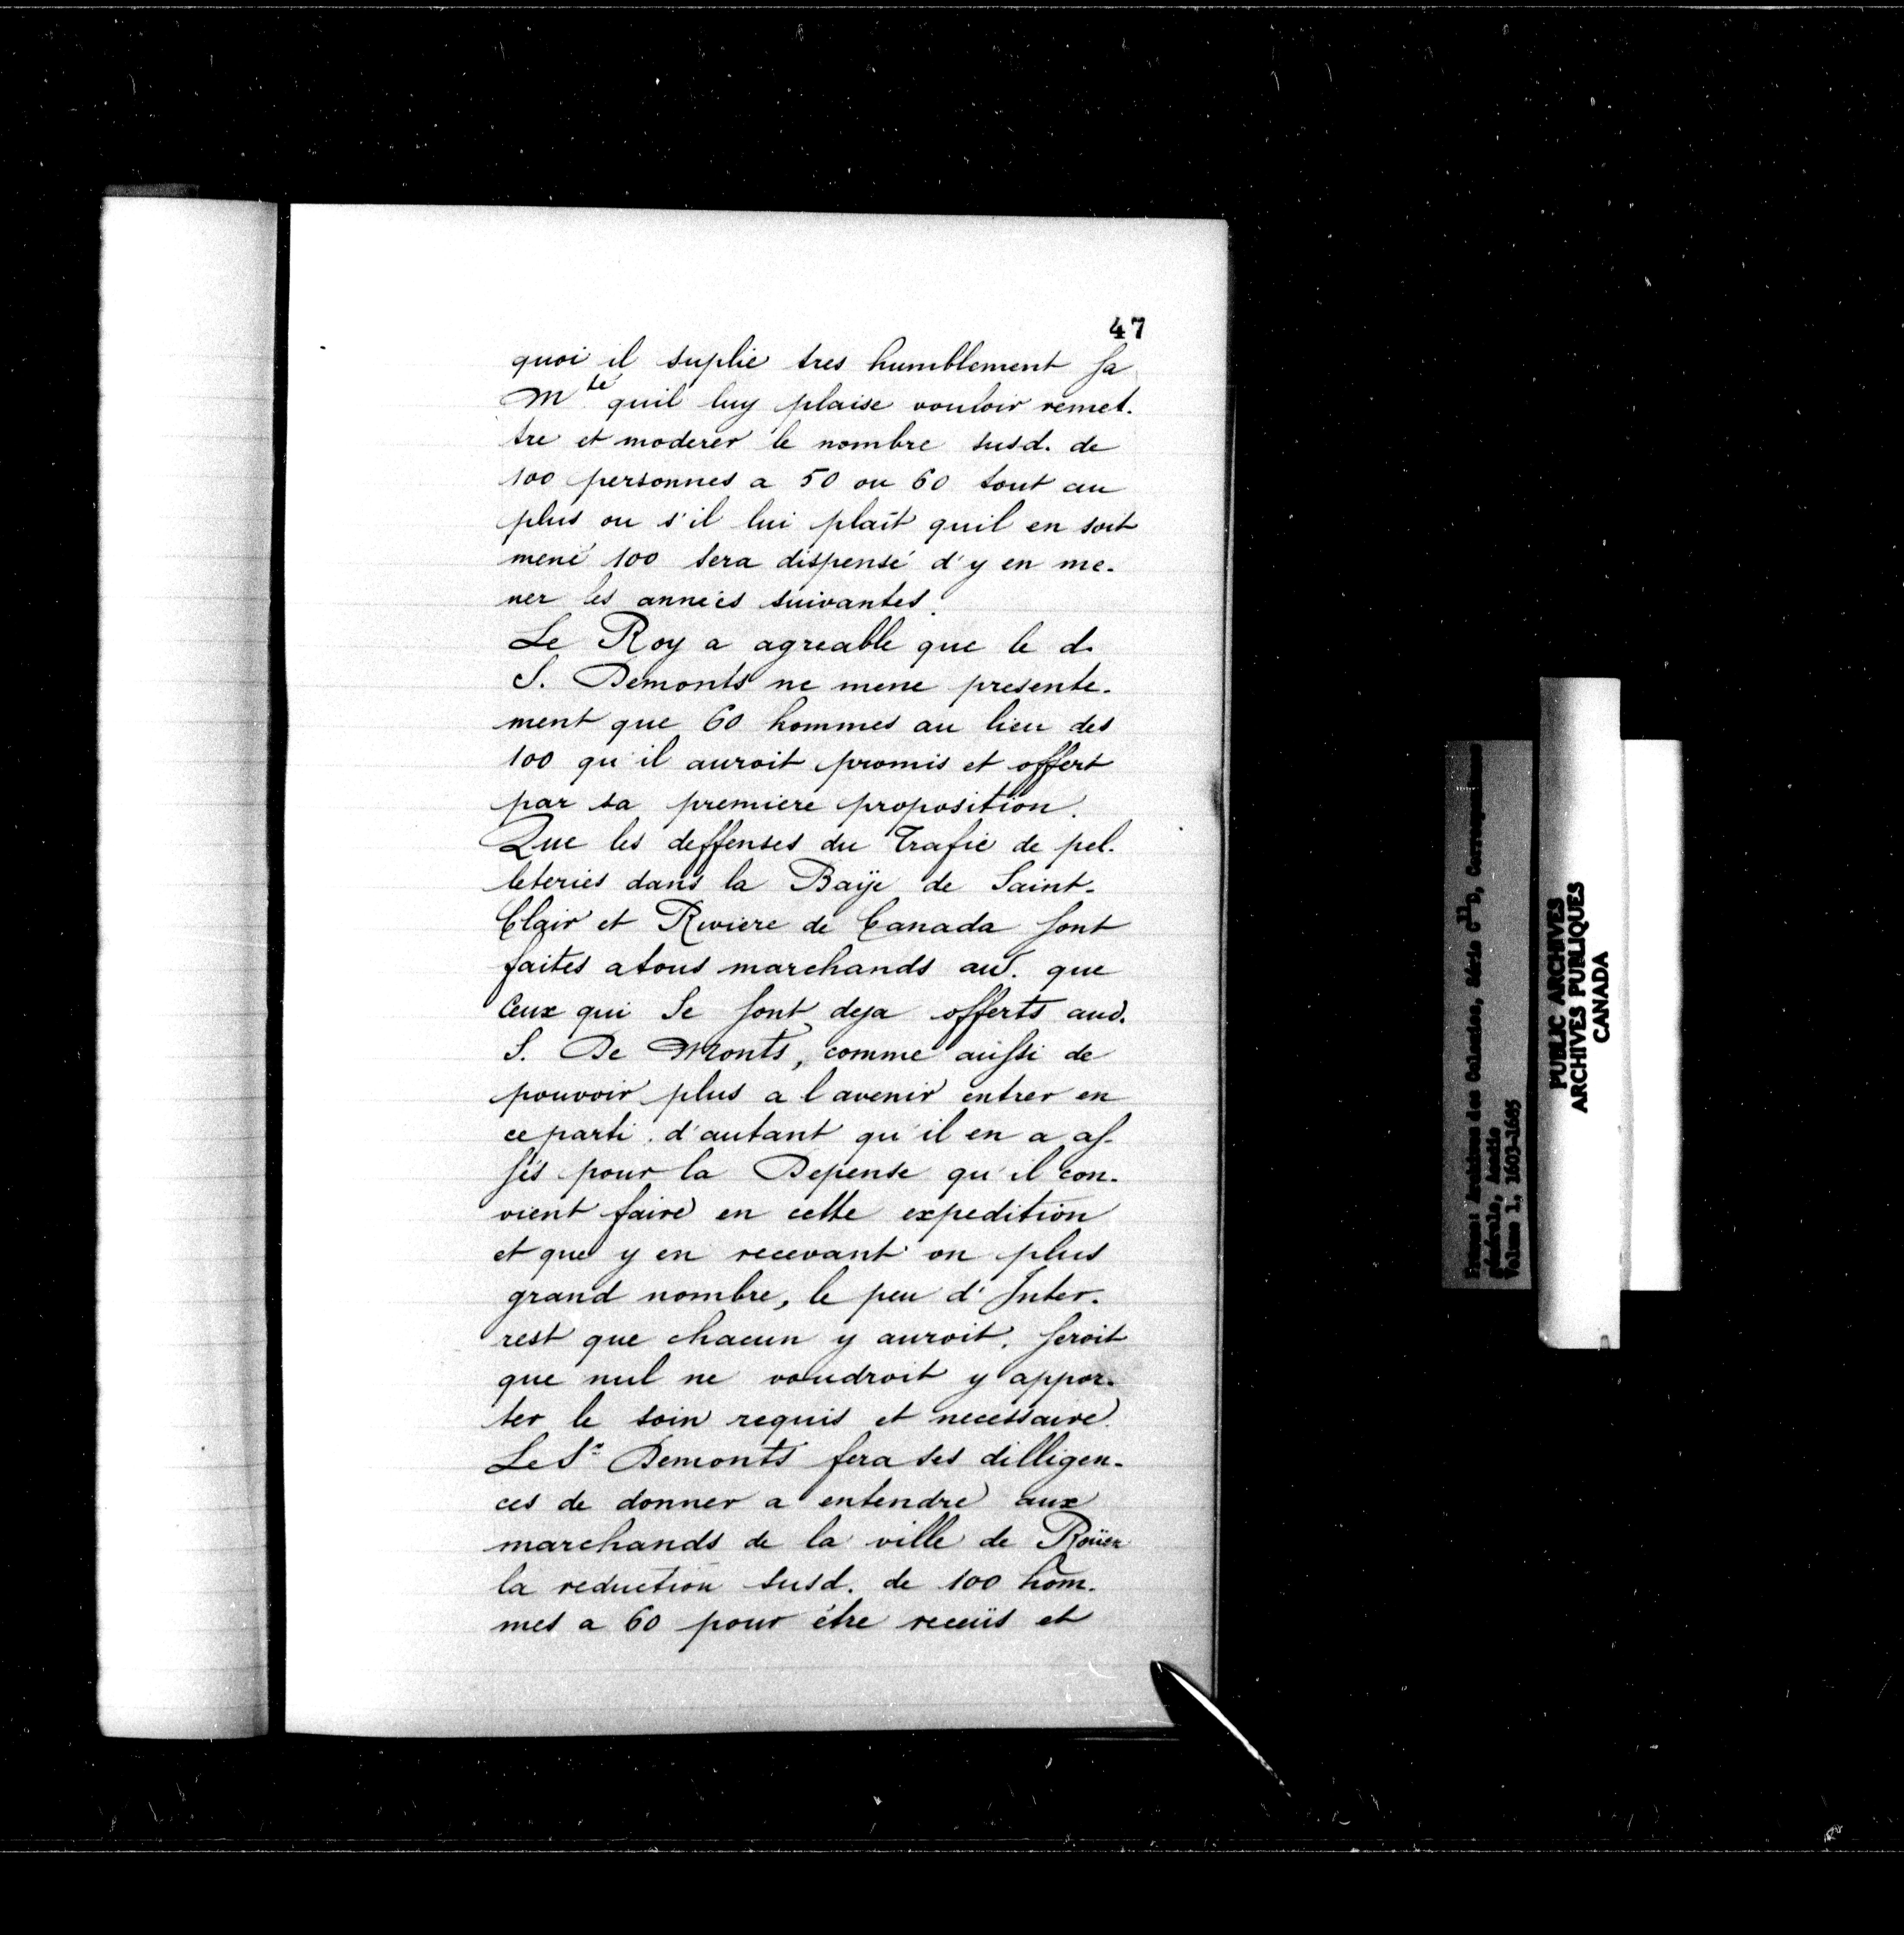 47
quoi il suplie tres humblement sa
Mté quil luy plaise vouloir remet-
tre et moderer le nombre susd. de
100 personnes a 50 ou 60 tout au
plus ou s'il lui plait quil en soit
mené 100 sera dispensé d'y en me-
ner les années suivantes.
Le Roy a agreable que le d.
S. Demonts ne mene presente-
ment que 60 hommes au lieu des
100 qu'il auroit promis et offert
par sa premiere proposition.
Que les deffenses du Trafic de pel-
leteries dans la Baÿe de Saint-
Clair et Riviere de Canada sont
faites a tous marchands aud. que
Ceux qui Se sont deja offerts aud.
S. De Monts, comme aussi de
pouvoir plus a l avenir entrer en
ce parti d'autant qu'il en a as-
sés pour la Depense qu'il con-
vient faire en cette expedition
et que y en recevant on plus
grand nombre, le peu d'Inter-
rest que chacun y auroit, feroit
que nul ne voudroit y appor-
ter le soin requis et necessaire.
Le Sr Demonts fera ses dilligen-
ces de donner a entendre aux
marchands de la ville de Roüen
la reduction susd. de 100 hom-
mes a 60 pour étre receüs et
France: Archives des Colonies, Série C11D, Correspondance
générale, Acadie
Volume 1, 1603-1685
PUBLIC ARCHIVES
ARCHIVES PUBLIQUES
CANADA